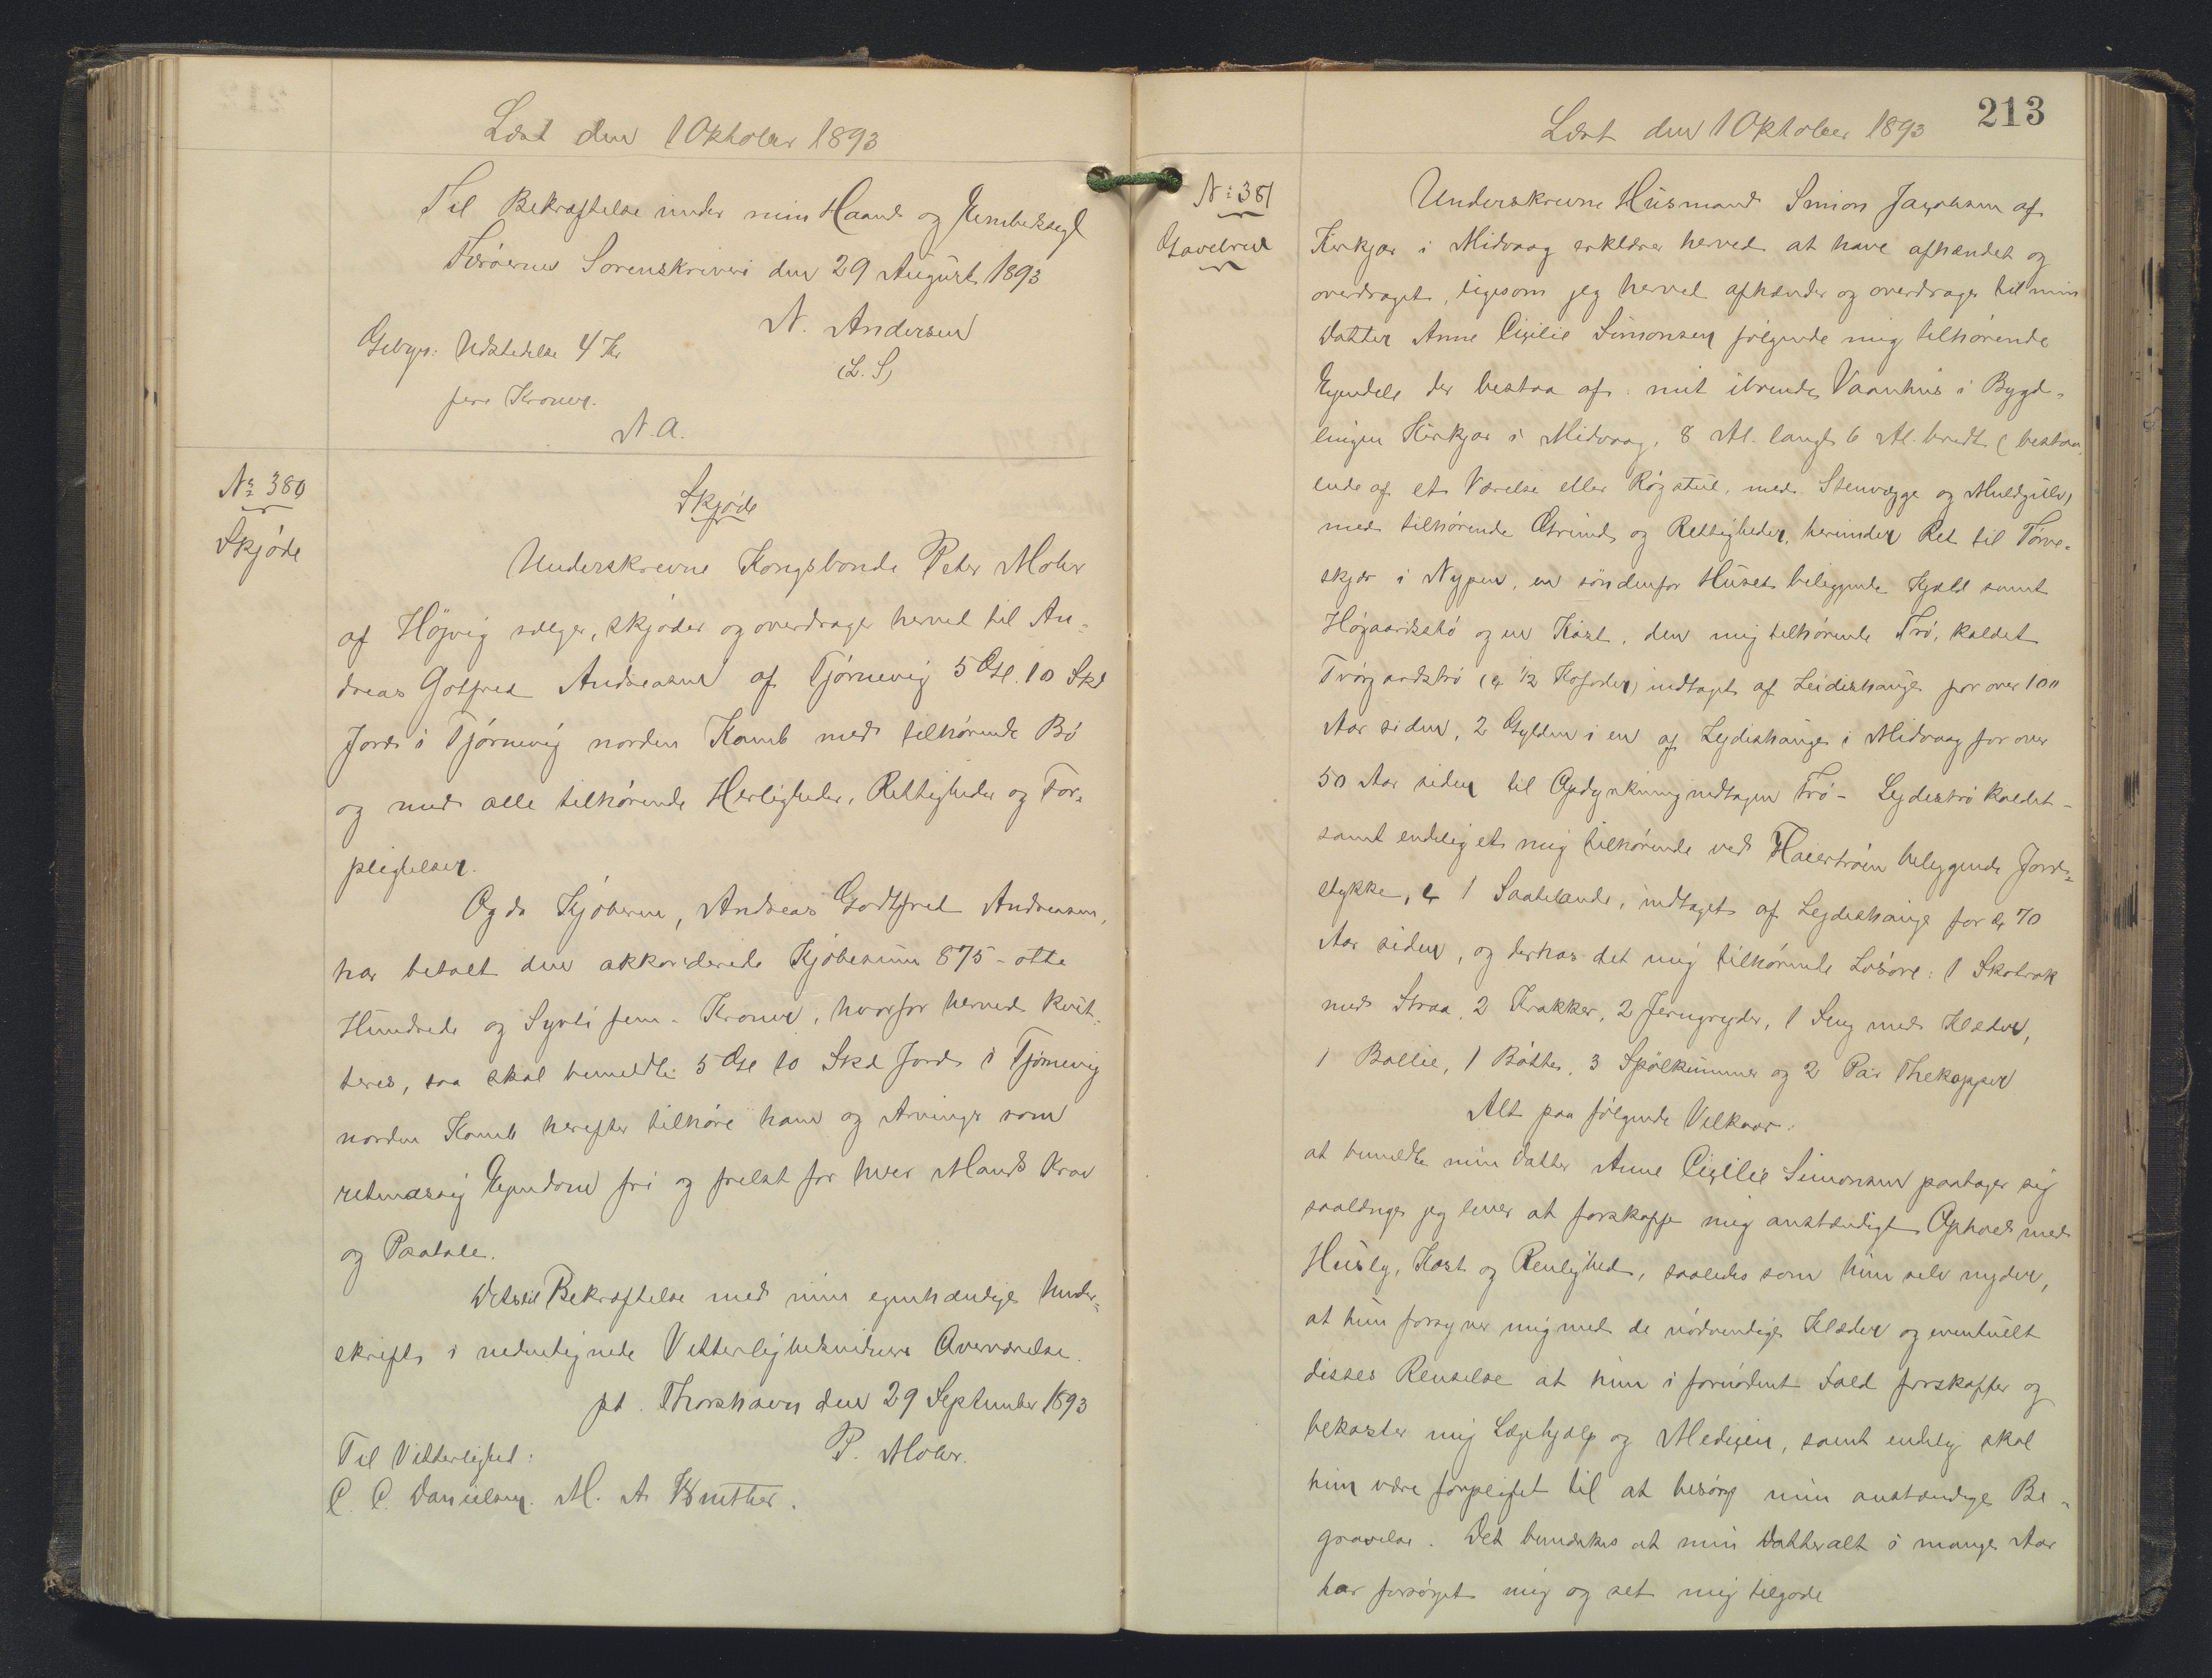 Læst den 1 Oktober 1893
Til Bekræftelse under min Haand og Embedssegl
Færøernes Sorenskriveri den 29 August 1893
N. Andersen
(L. S)
Gebyr: Udstedelse 4 Kr
fire Kroner.
N. A.
No 380
Skjøde
Skjøde
Underskrevne Kongsbonde Peter Mohr
af Højvig sælger, skjøder og overdrager herved til An-
dreas Gotfred Andreasen af Tjørnevig 5 Gl. 10 Skd
Jord i Tjørnevig norden Kamb med tilhørende Bø
og med alle tilhørende Herligheder, Rettigheder og For-
pligtelser.
Og da Kjøberen, Andreas Godtfred Andreasen,
har betalt den akkorderede Kjøbesum 875 - otte
Hundrede og Syvti fem - Kroner, hvorfor herved kvit-
teres, saa skal bemeldte 5 Gl 10 Skd Jord i Tjørnevig
norden Kamb herefter tilhøre ham og Arvinger som
retmæssig Ejendom fri og frelst for hver Mands Krav
og Paatale.
Dets til Bekræftelse med min egenhændige Under-
skrift i nedentegnede Vitterlighedsvidners Overværelse.
pt. Thorshavn den 29 September 1893
P. Mohr.
Til Vitterlighed:
C. C. Danielsen. M. A. Winther.
213
Læst den 1 Oktober 1893
No 381
Gavebrev
Underskrevne Husmand Simon Jacobsen af
Kirkjar i Midvaag erklærer herved at have afhændet og
overdraget, ligesom jeg herved afhænder og overdrager til min
Datter Anne Cicilie Simonsen følgende mig tilhørende
Ejendele der bestaa af: mit iboende Vaanhus i Bygd-
lingen Kirkjar i Midvaag, 8 Al. langt 6 Al. bredt (bestaa-
ende af et Værelse eller Røgstue, med Stenvægge og Muldgulv)
med tilhørende Grund og Rettigheder, herunder Ret til Tørve-
skjær i Nypen, en søndenfor Huset beliggende Kjæld samt
Høgaardstø og en Kast, den mig tilhørende Trø, kaldet
Tvørgardstrø (ca 1/2 Kofoder) indtaget af Leidishauge for over 100
Aar siden, 2 Gylden i en af Lejdishauge i Midvaag for over
50 Aar siden til Opdyrkning indtagen Trø - Lejdestrø kaldet -
samt endelig et mig tilhørende ved beliggende Jord-
stykke, ca 1 Saatelands, indtaget af Lejdeshauge for ca 70
Aar siden, og derhos det mig tilhørende Løsøre: 1 Skotrok
med Straa, 2 Krakker, 2 Jerngryder, 1 Seng med Klæder,
1 Ballie, 1 Bøtte, 3 Spølkummer og 2 Par Thekopper
Alt paa følgende Velkaar:
at bemeldte min Datter Anne Cicilie Simonsen paatager sig
saalænge jeg lever at forskaffe mig anstændigt Ophold med
Husly, Kost og Renlighed, saaledes som hun selv nyder,
at hun forsyner mig med de nødvendige Klæder og eventuelt
disses Renselse at hun i fornødent Fald forskaffer og
bekoster mig Lægehjælp og Medicin, samt endelig skal
hun være forpligtet til at besørge min anstændige Be-
gravelse. Det bemærkes at min Datter alt i mange Aar
har forsørget mig og set mig tilgode